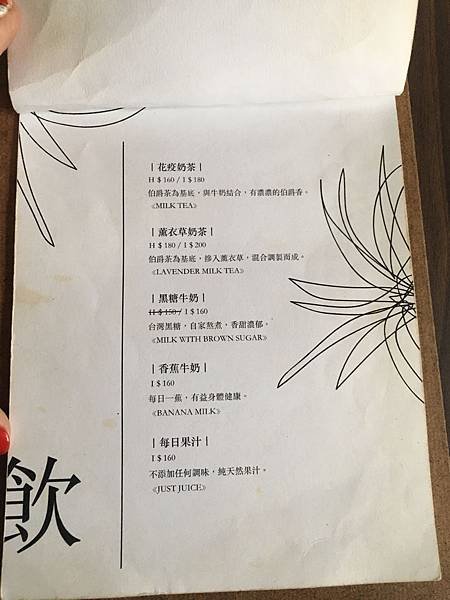 |花疫奶茶|
H $160 / I $180
伯爵茶為基底，與牛奶結合，有濃濃的伯爵香。
《MILK TEA》
|薰衣草奶茶|
H $180 / I $200
伯爵茶為基底，摻入薰衣草，混合調製而成。
《LAVENDER MILK TEA》
|黑糖牛奶|
H $150 / I $160
台灣黑糖，自家熬煮，香甜濃郁。
《MILK WITH BROWN SUGAR》
|香蕉牛奶|
I $160
每日一蕉，有益身體健康。
《BANANA MILK》
|每日果汁|
I $160
不添加任何調味，純天然果汁。
《JUST JUICE》
飲